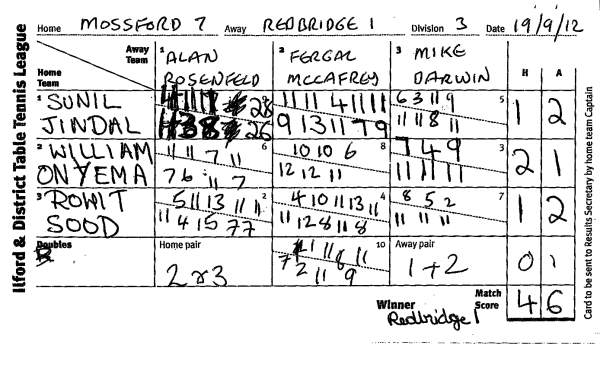 Home MOSSFORD 7 Away REDBRIDGE 1 Division 3 Date 19/9/12
Ilford & District Table Tennis League
Away Team
Home Team
1 ALAN ROSENFELD
2 FERGAL MCCAFREY
3 MIKE DARWIN
H A
1 SUNIL JINDAL
28
26
11 11 4 11 11
9 13 11 7 9
6 3 11 9
11 11 8 11
5
1 2
2 WILLIAM ONYEMA
11 11 7 11
7 6 11 7
6
10 10 6
12 12 11
8
7 4 9
11 11 11
3
2 1
3 ROHIT SOOD
5 11 13 11 11
11 4 15 7 7
2
4 10 11 13 11
11 12 8 11 8
4
8 5 2
11 11 11
7
1 2
Doubles
Home pair
2 & 3
11 8 11
7 2 11 9
10
Away pair
1 + 2
0 1
Winner Redbridge 1
Match Score 4 6
Card to be sent to Results Secretary by home team Captain